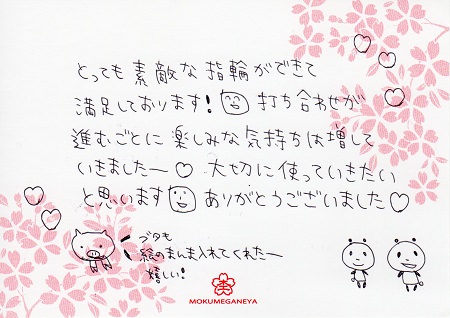 とっても素敵な指輪ができて
満足しております! 打ち合わせが
進むごとに楽しみな気持ちは増して
いきましたー♡ 大切に使っていきたい
と思います ありがとうございました♡
ブタも
絵のまんま入れてくれたー
嬉しい!
MOKUMEGANEYA